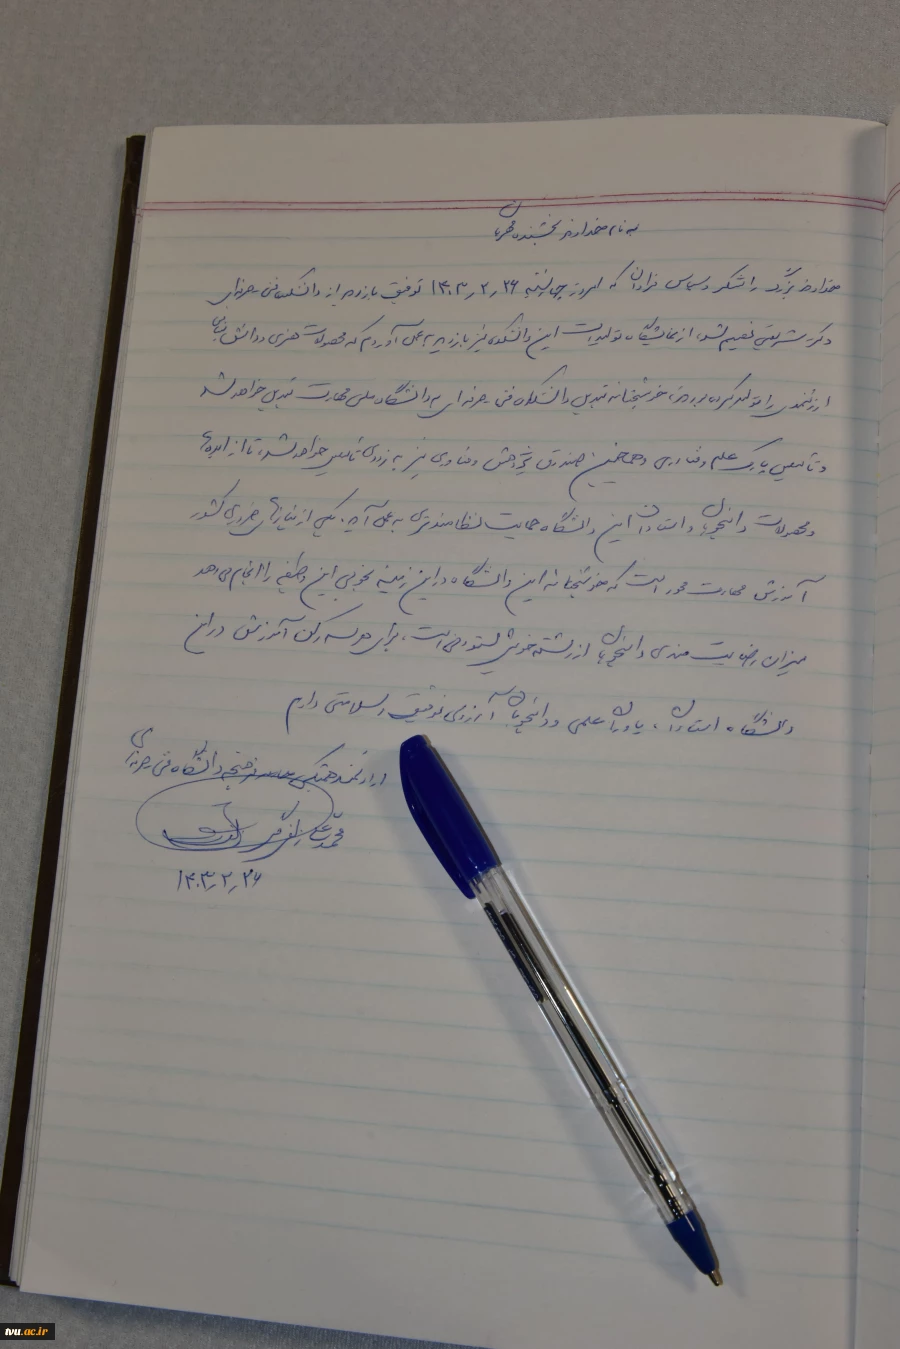 به نام خداوند بخشنده مهربان
خداوند بزرگ را شکر و سپاس فراوان که امروز چهارشنبه ۱۴۰۳٫۲٫۲۶ توفیق بازدید از دانشکده فنی و حرفه‌ای
دکتر شریعتی نصیبم شد، از نمایشگاه تولیدات این دانشکده نیز بازدید به عمل آوردم که محصولات هنری و دانش بنیان
ارزشمندی را تولید کرده بودند، خوشبختانه بزودی دانشگاه فنی و حرفه‌ای به دانشگاه ملی مهارت تبدیل خواهد شد
و تأسیس پارک علم و فناوری و همچنین صندوق پژوهش و فناوری نیز به زودی تأسیس خواهد شد، تا از ایده‌ها
و محصولات دانشجویان و استادان این دانشگاه حمایت نظامندتری به عمل آید. یکی از نیازهای ضروری کشور
آموزش مهارت محور است که خوشبختانه این دانشگاه در این زمینه بخوبی این وظیفه را انجام می‌دهد
میزان رضایت مندی دانشجویان از رشته خویش ستودنی است، برای هر سه رکن آموزش در این
دانشگاه استادان، یاوران علمی و دانشجویان آرزوی توفیق و سلامتی دارم
دانشگاه فنی و حرفه‌ای
محمدرضا
۱۴۰۳٫۲٫۲۶
tvu.ac.ir